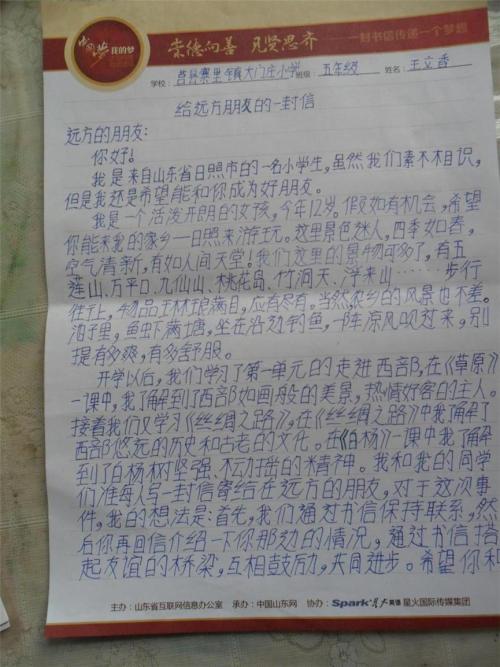 中国梦 我的梦
崇德向善 见贤思齐
一封书信传递一个梦想
学校：莒县寨里镇大门庄小学 班级：五年级 姓名：王立香
给远方朋友的一封信
远方的朋友：
你好！
我是来自山东省日照市的一名小学生，虽然我们素不相识，
但是我还是希望能和你成为好朋友。
我是一个活泼开朗的女孩，今年12岁。假如有机会，希望
你能来我的家乡—日照来游玩。这里景色迷人，四季如春，
空气清新，有如人间天堂！我们这里的景物可多了，有五
莲山、万平口、九仙山、桃花岛、竹洞天、浮来山……步行
往上，物品琳琅满目，应有尽有。当然农乡的风景也不差。
沟子里，鱼虫下满塘，坐在沿边钓鱼，一阵凉风吹过来，别
提有多爽，有多舒服。
开学以后，我们学习了第一单元的走进西部，在《草原》
一课中，我了解到了西部如画般的美景，热情好客的主人。
接着我们又学习《丝绸之路》，在《丝绸之路》中我了解了
西部悠远的历史和古老的文化。在《白杨》一课中我了解
到了白杨树坚强、不动摇的精神。我和我的同学
们准每人写一封信寄给在远方的朋友，对于这次事
件，我的想法是：首先，我们通过书信保持联系，然
后你再回信介绍一下你那边的情况，通过书信搭
起友谊的桥梁，互相鼓励，共同进步。希望你和
主办：山东省互联网信息办公室 承办：中国山东网 协办：Spark星火英语 星火国际传媒集团